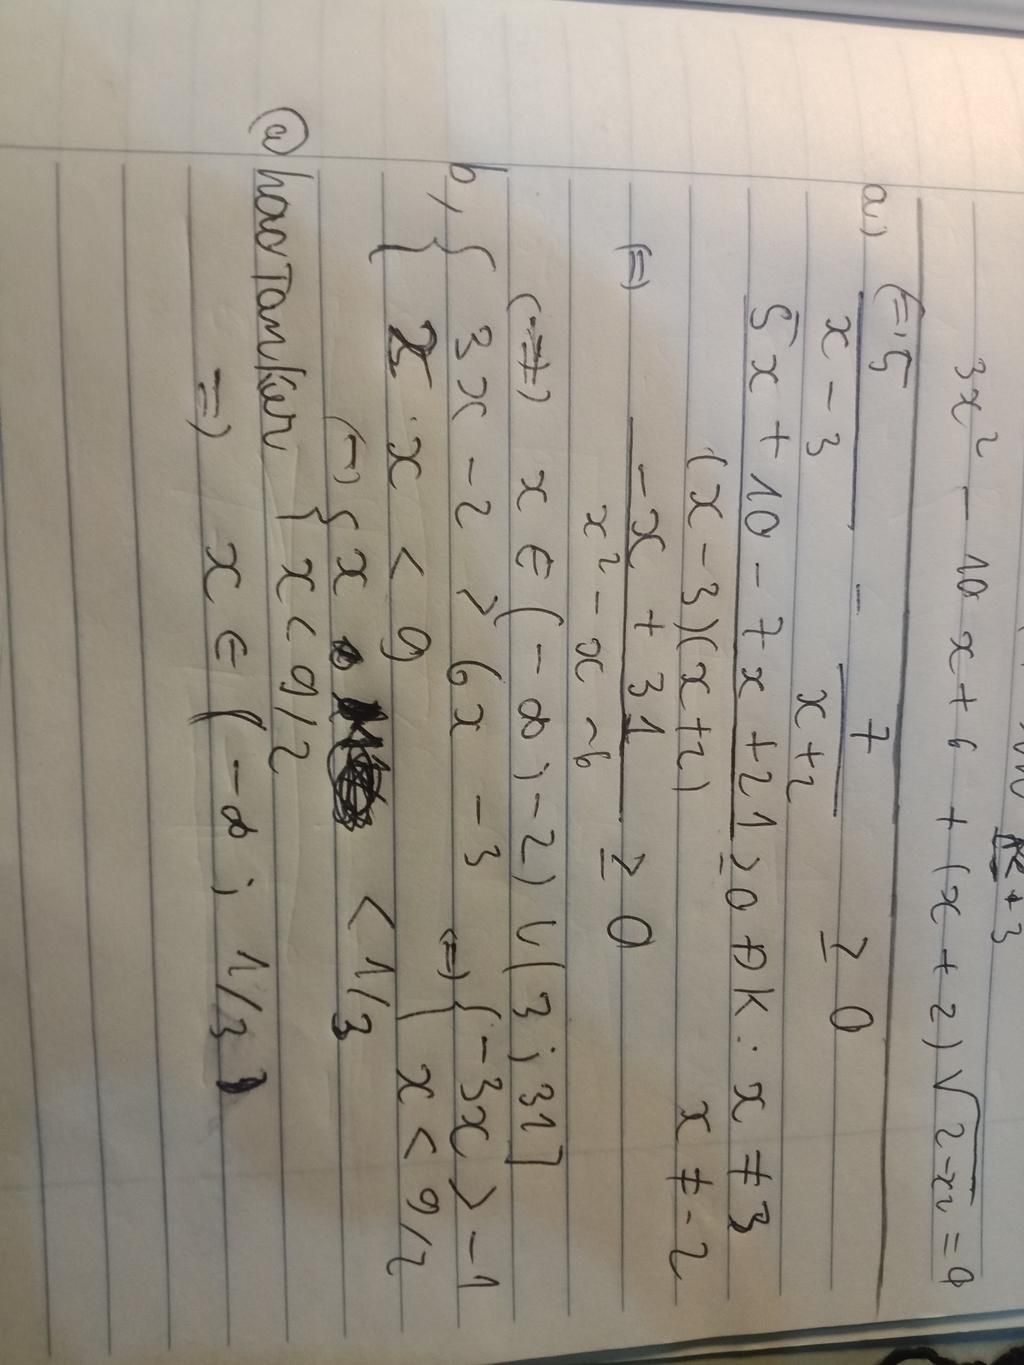 3x² - 10x + 6 + (x + 2)√2-x² = 0
a,) (=) 5/(x - 3) - 7/(x+2) ≥ 0
(5x + 10 - 7x + 21)/((x - 3)(x+2)) ≥ 0 ĐK: x ≠ 3
x ≠ -2
(=) (-x + 31)/(x² - x - 6) ≥ 0
(=) x ∈ (-∞; -2) ∪ (3; 31]
b, { 3x - 2 > 6x - 3 (=) { -3x > -1
{ 2x < 9 { x < 9/2
(=) { x < 1/3
{ x < 9/2
=) x ∈ (-∞; 1/3)
@haoTanker